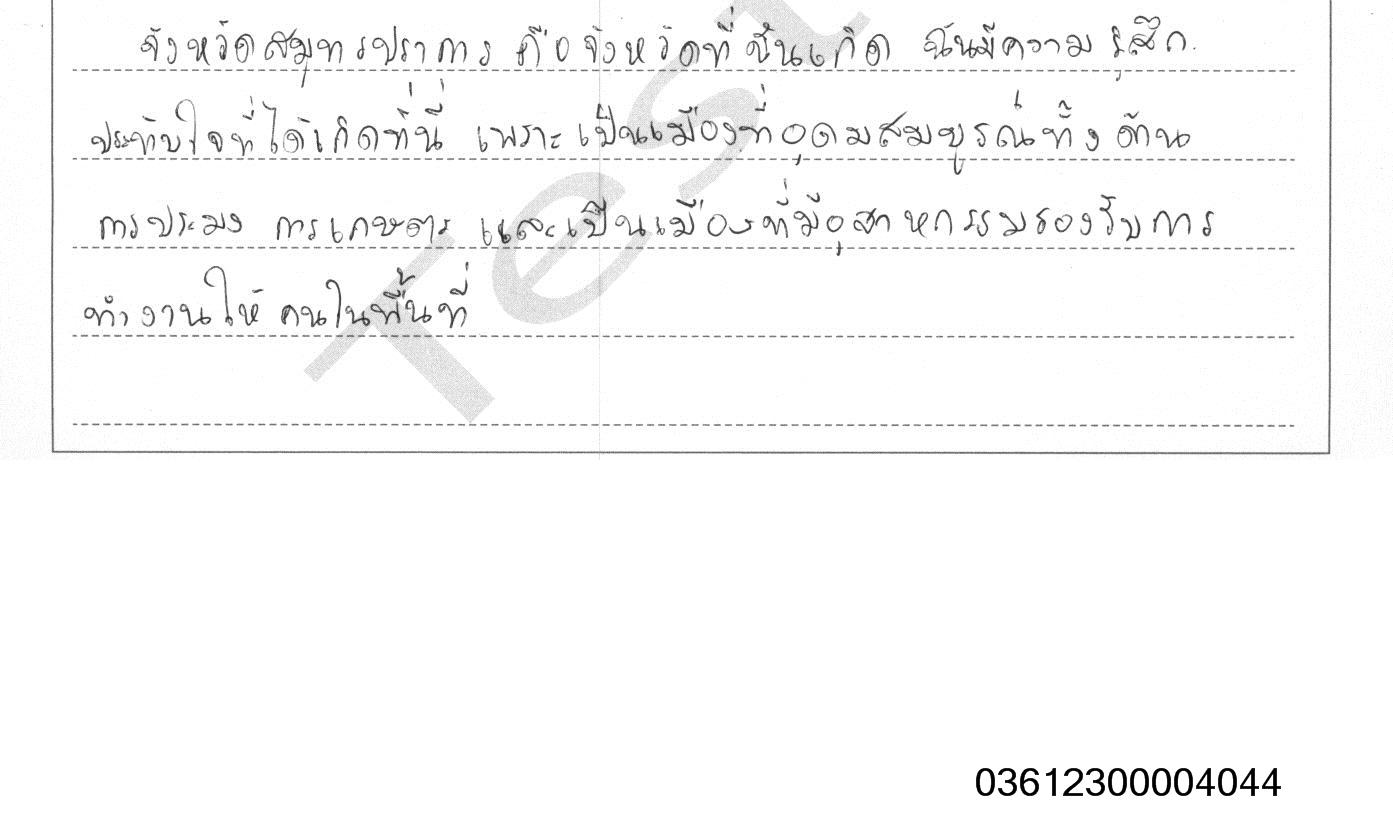 จังหวัดสมุทรปราการ คือจังหวัดที่ฉันเกิด ฉันมีความรู้สึก
ประทับใจที่ได้เกิดที่นี่ เพราะเป็นเมืองที่อุดมสมบูรณ์ทั้งด้าน
การประมง การเกษตร และเป็นเมืองที่มีอุสาหกรรมรองรับการ
ทำงานให้คนในพื้นที่
Test
03612300004044